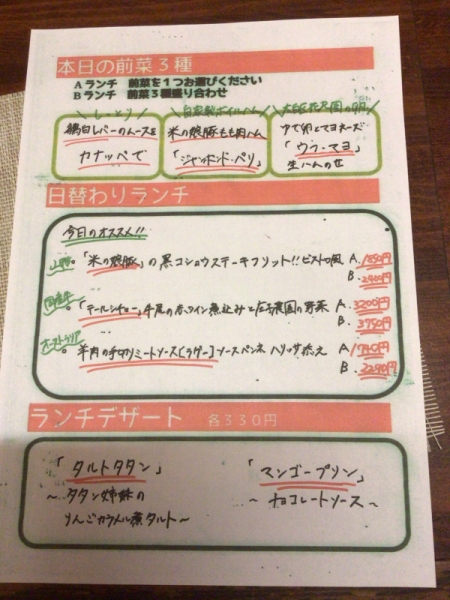 本日の前菜3種
Aランチ 前菜を1つお選びください
Bランチ 前菜3種盛り合わせ
\しっとり/
鶏白レバーのムースを
カナッペで
\自家製ボイルハム/
米の娘豚もも肉ハム
「ジャンボンド・パリ」
ゆで卵とマヨネーズ
「ウフ・マヨ」
生ハムのせ
日替わりランチ
今日のオススメ!!
「米の娘豚」の黒コショウステーキフリット!!ビストロ風
A.
B.
国産牛
「テールシチュー」牛尾の赤ワイン煮込みと 農園の野菜
A. 3200円
B. 3750円
オーストラリア
羊肉の手切りミートソース(ラグー)ソースペンネ ハリッサ添え
A. 1740円
B. 2290円
ランチデザート 各330円
「タルトタタン」
~タタン姉妹の
りんごカラメル煮タルト~
「マンゴープリン」
~チョコレートソース~